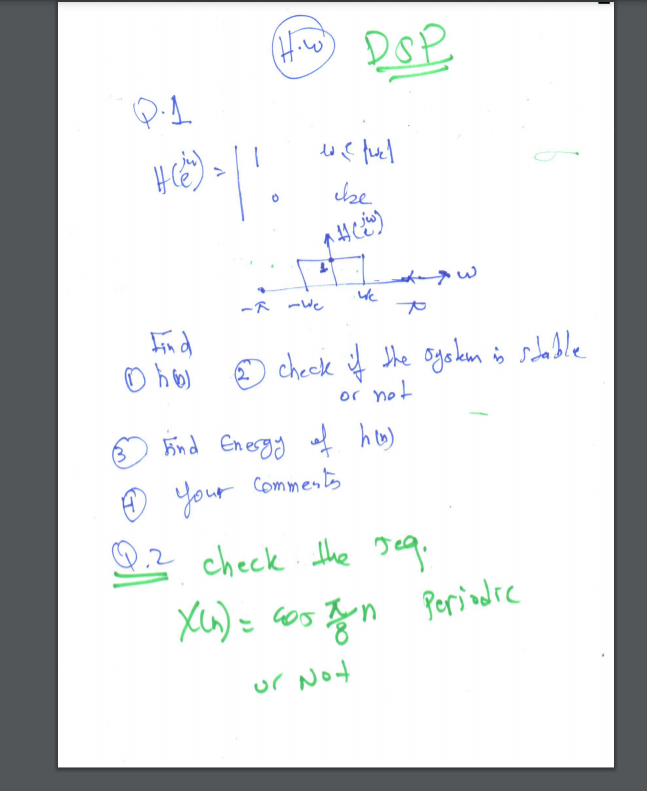 H.w DSP
Q.1
H(e^jω) = | 1 ω ≤ |ωc|
0 else
H(e^jω)
1
ω
-π -ωc ωc π
Find
① h(n) ② check if the system is stable
or not
③ Find Energy of h(n)
④ your comments
Q.2 check the seq.
X(n) = cos π/8 n Periodic
or Not